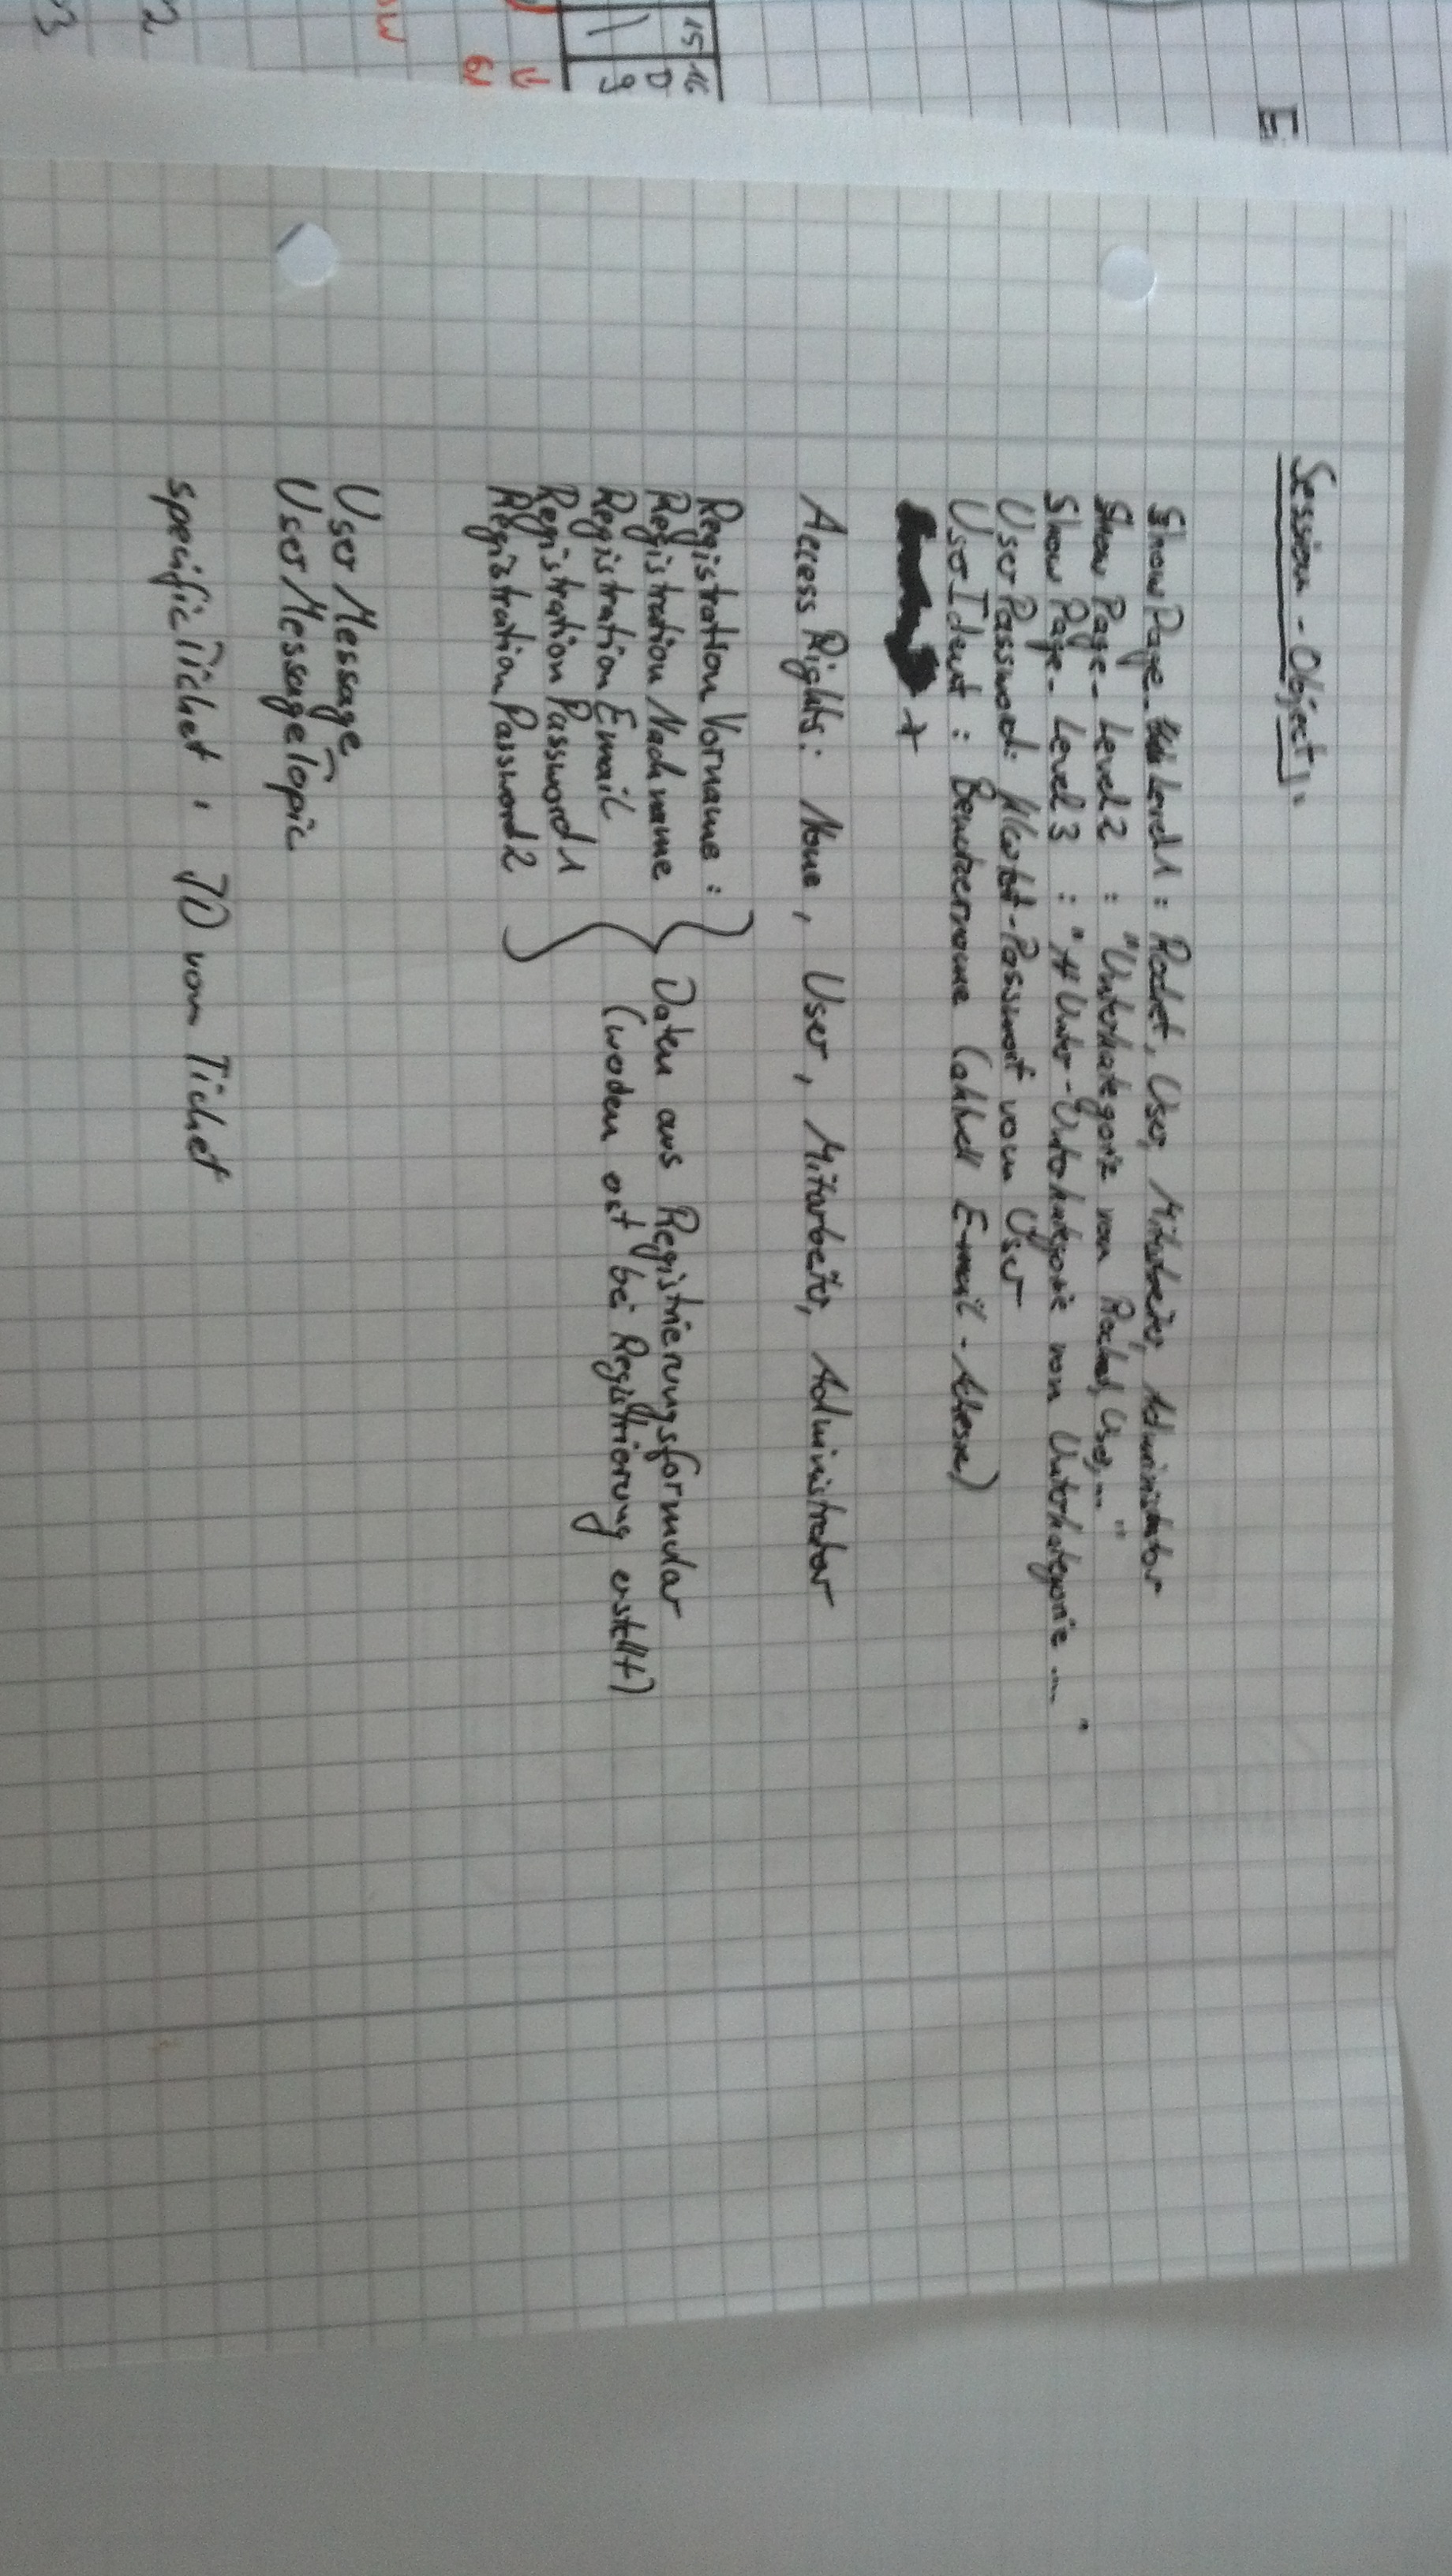 Session-Object:
ShowPage_Level1 : Rocket, User, Mitarbeiter, Administrator
ShowPage_Level2 : "Unterkategorie von Rocket, User, ..."
ShowPage_Level3 : "Unter-Unterkategorie von Unterkategorie ..."
UserPassword: Passwort vom User
UserIdent : Benutzername (aktuell E-mail-Adresse)
Access Rights: None, User, Mitarbeiter, Administrator
Registration Vorname :
Registration Nachname
Registration Email
Registration Password1
Registration Password2
Daten aus Registrierungsformular
(werden erst bei Registrierung erstellt)
User Message
User MessageTopic
specificTicket : ID vom Ticket
15 16
D
9
2
3